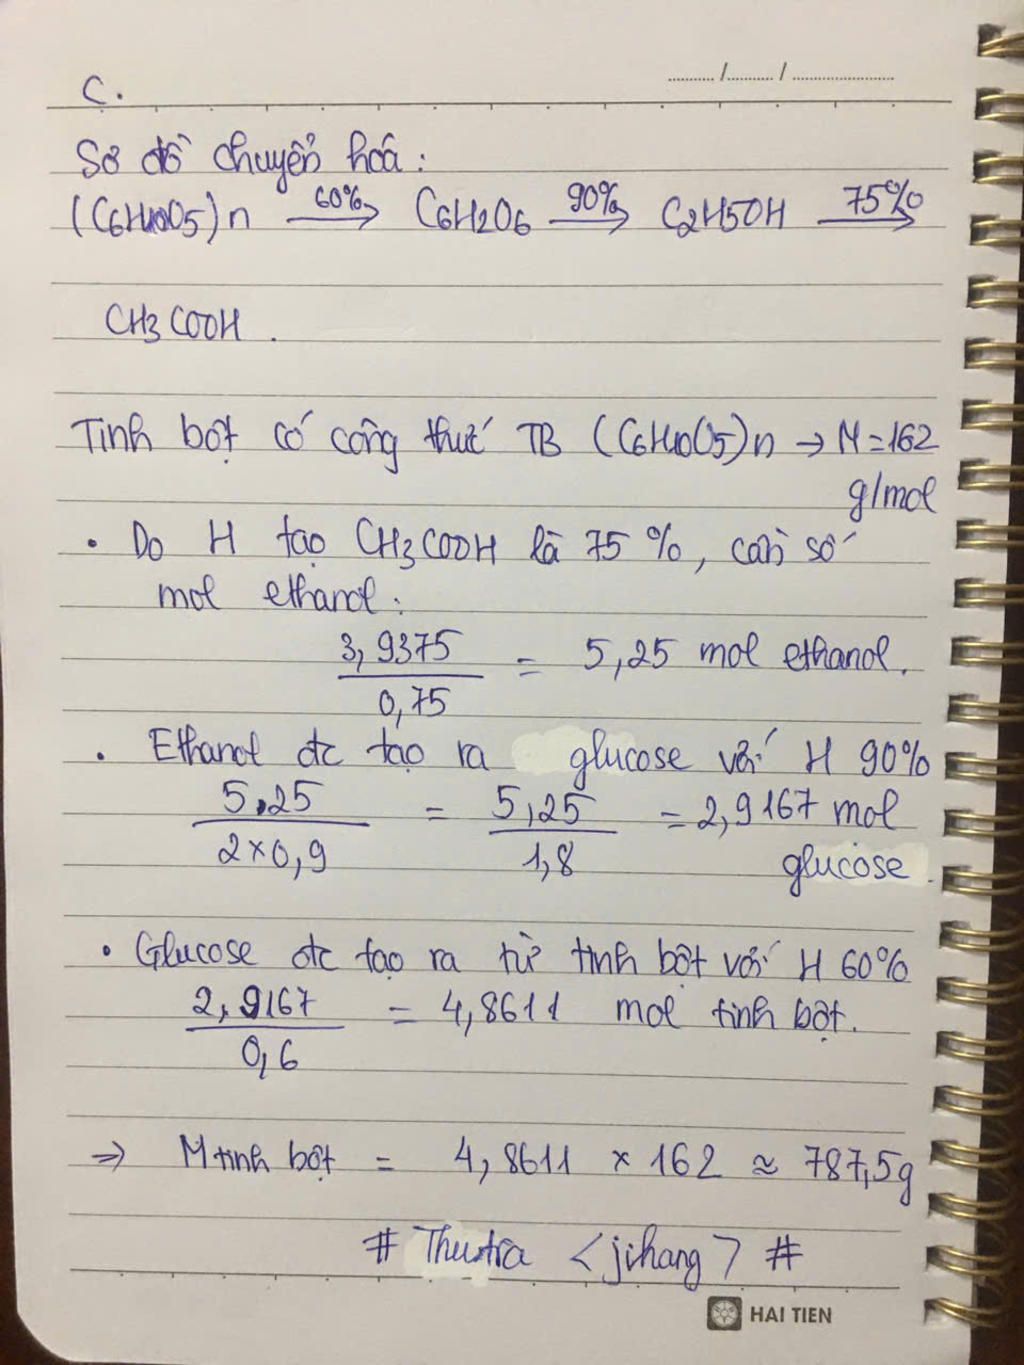 ....../....../............
C.
Sơ đồ chuyển hoá :
(C6H10O5)n 60%→ C6H2O6 90%→ C2H5OH 75%→
CH3COOH .
Tinh bột có công thức TB (C6H10O5)n → M=162
g/mol
• Do H tạo CH3COOH là 75 %, cần số
mol ethanol :
3,9375 / 0,75 = 5,25 mol ethanol.
• Ethanol đc tạo ra glucose với H 90%
5,25 / 2×0,9 = 5,25 / 1,8 = 2,9167 mol
glucose .
• Glucose đc tạo ra từ tinh bột với H 60%
2,9167 / 0,6 = 4,8611 mol tinh bột.
⇒ M tinh bột = 4,8611 × 162 ≈ 787,5g
# Thutra <jihang> #
HAI TIEN